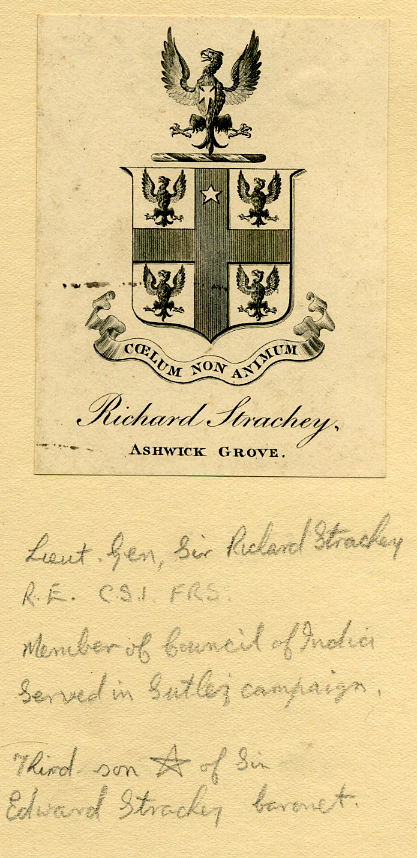 CŒLUM NON ANIMUM
Richard Strachey,
ASHWICK GROVE.
Lieut. Gen, Sir Richard Strachey
R.E. CSI. FRS.
Member of Council of India
Served in Sutlej campaign.
Third son ☆ of Sir
Edward Strachey baronet.